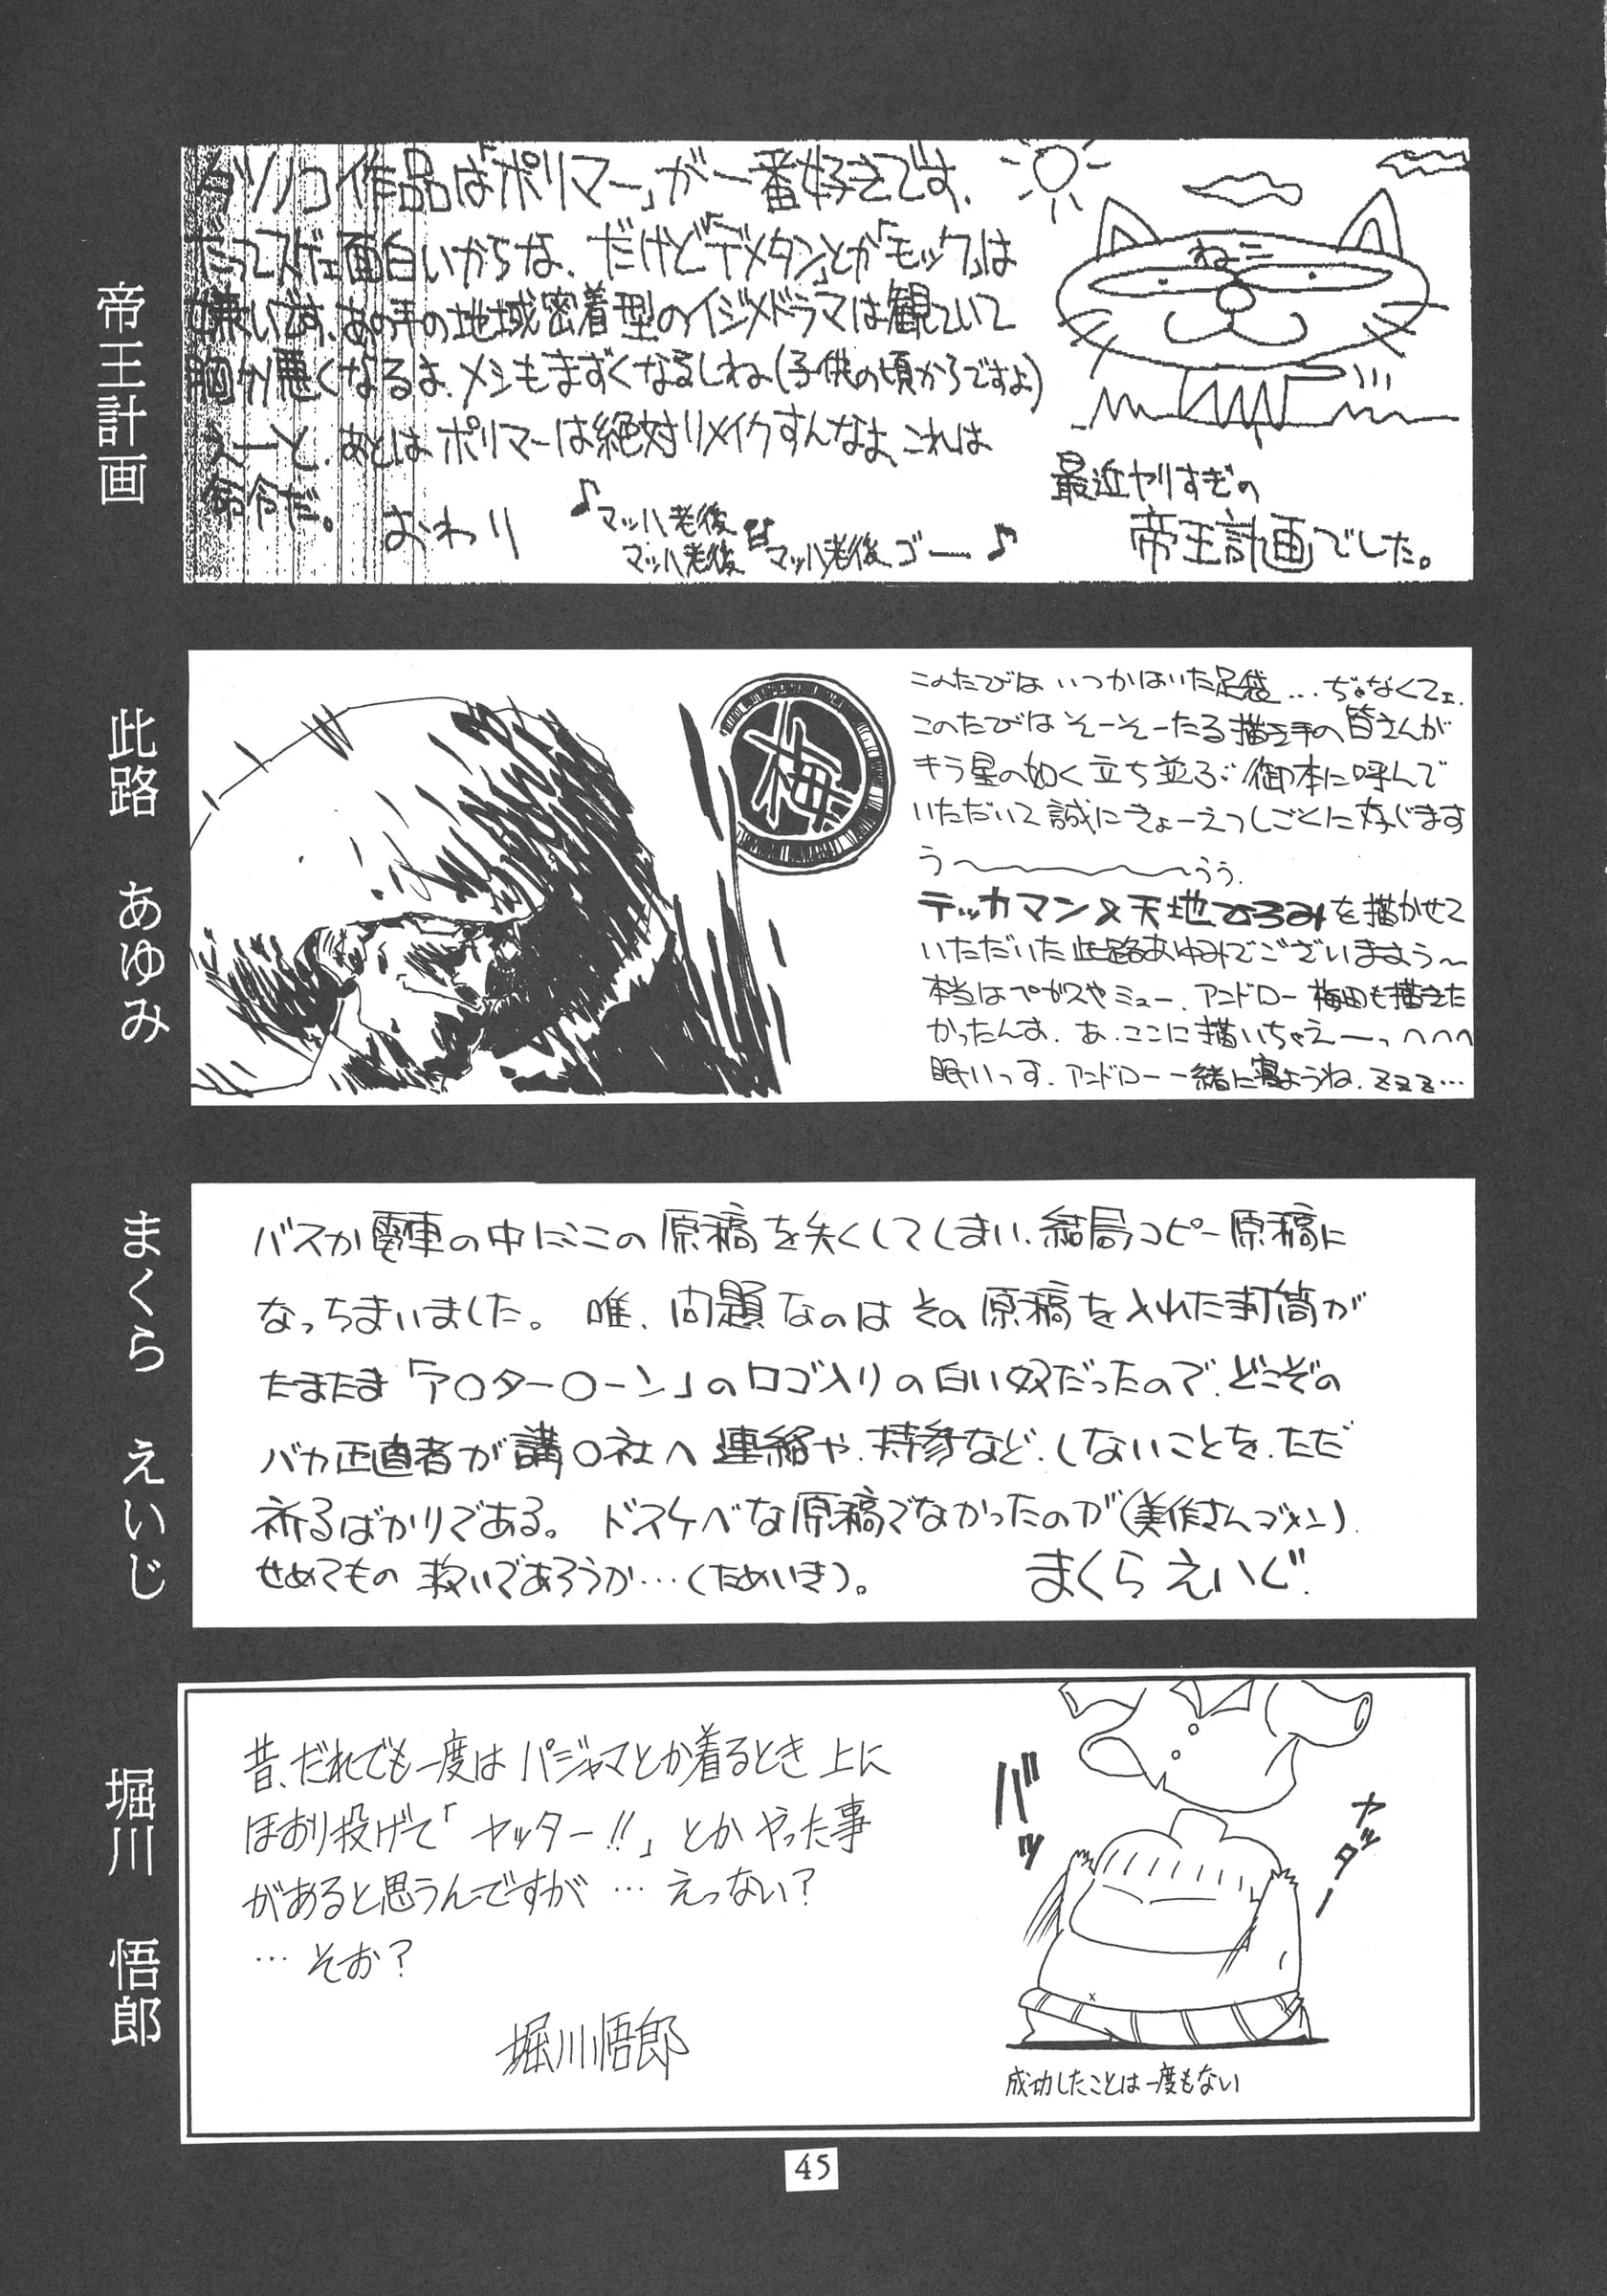 帝王計画
タツノコ作品は「ポリマー」が一番好きです。
だってスゲェ面白いからな、だけど「デメタン」とか「モック」は
嫌いです、あの手の地域密着型のイジメドラマは観ていて
胸が悪くなるよ、メシもまずくなるしね(子供の頃からですよ)
えーと、あとはポリマーは絶対リメイクすんなよ、これは
命令だ。
おわり
♪マッハ老後
マッハ老後
マッハ老後 ゴー♪
ねこ
最近ヤリすぎの
帝王計画でした。
此路 あゆみ
梅
このたびは いつかはいた足袋…ぢゃなくてェ、
このたびは そーそーたる描き手の皆さんが
キラ星の如く立ち並ぶ御本に呼んで
いただいて誠にきょーえつしごくに存じます
う〜〜〜〜〜うう。
テッカマン×天地ひろみを描かせて
いただいた此路あゆみでございますう〜
本当はペガスやミュー、アンドロー梅田も描きた
かったんよ、あ、ここに描いちゃえーっへへへ
眠いっす、アンドロー一緒に寝ようね、zzz…
まくら えいじ
バスか電車の中にこの原稿を失くしてしまい、結局コピー原稿に
なっちまいました。唯、問題なのはその原稿を入れた封筒が
たまたま「ア〇ター〇ーン」のロゴ入りの白い奴だったので、どこぞの
バカ正直者が講〇社へ連絡や、持参など、しないことを、ただ
祈るばかりである。ドスケベな原稿でなかったのが(美作さんゴメン)
せめてもの救いであろうか…(ためいき)。
まくらえいじ
堀川 悟郎
昔、だれでも一度はパジャマとか着るとき上に
ほおり投げて「ヤッター!!」とかやった事
があると思うんですが…えっない?
…そお?
堀川悟郎
バッ
ヤッター
成功したことは一度もない
45